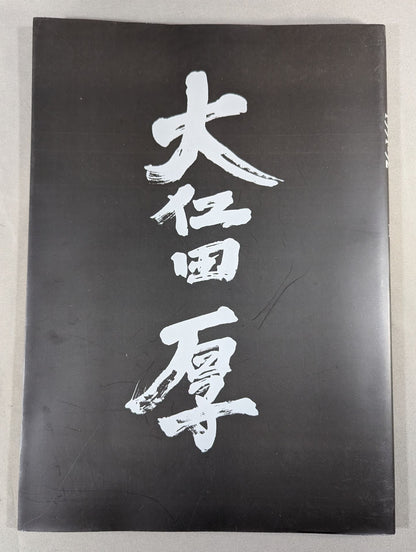 大仁田厚